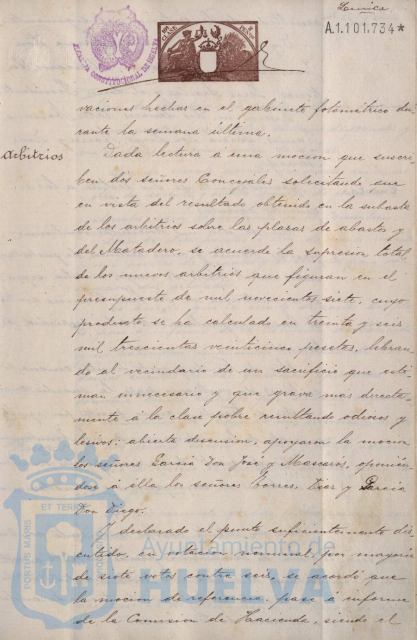 A.1.101.734*
vaciones hechas en el gabinete fotométrico du-
rante la semana última.
Arbitrios
Dada lectura á una mocion que suscri-
ben dos señores Concejales solicitando que
en vista del resultado obtenido en la subasta
de los arbitrios sobre las plazas de abastos y
del Matadero, se acuerde la supresion total
de los nuevos arbitrios que figuran en el
presupuesto de mil novecientos siete, cuyo
producto se ha calculado en treinta y seis
mil trescientas veinticinco pesetas, libran-
do al vecindario de un sacrificio que esti-
man innecesario y que grava mas directa-
mente á la clase pobre resultando odiosos y
lesivos: abierta discusion, apoyaron la mocion
los señores García Don José y Mascarós, oponién-
dose á ella los señores Torres, Diaz y García
Don Diego.
Y declarado el punto suficientemente dis-
cutido, en votacion nominal, por mayoria
de siete votos contra seis, se acordó que
la mocion de referencia, pase á informe
de la Comision de Hacienda, siendo el
PORTUS MARIS ET TERRE
Ayuntamiento de
HUELVA